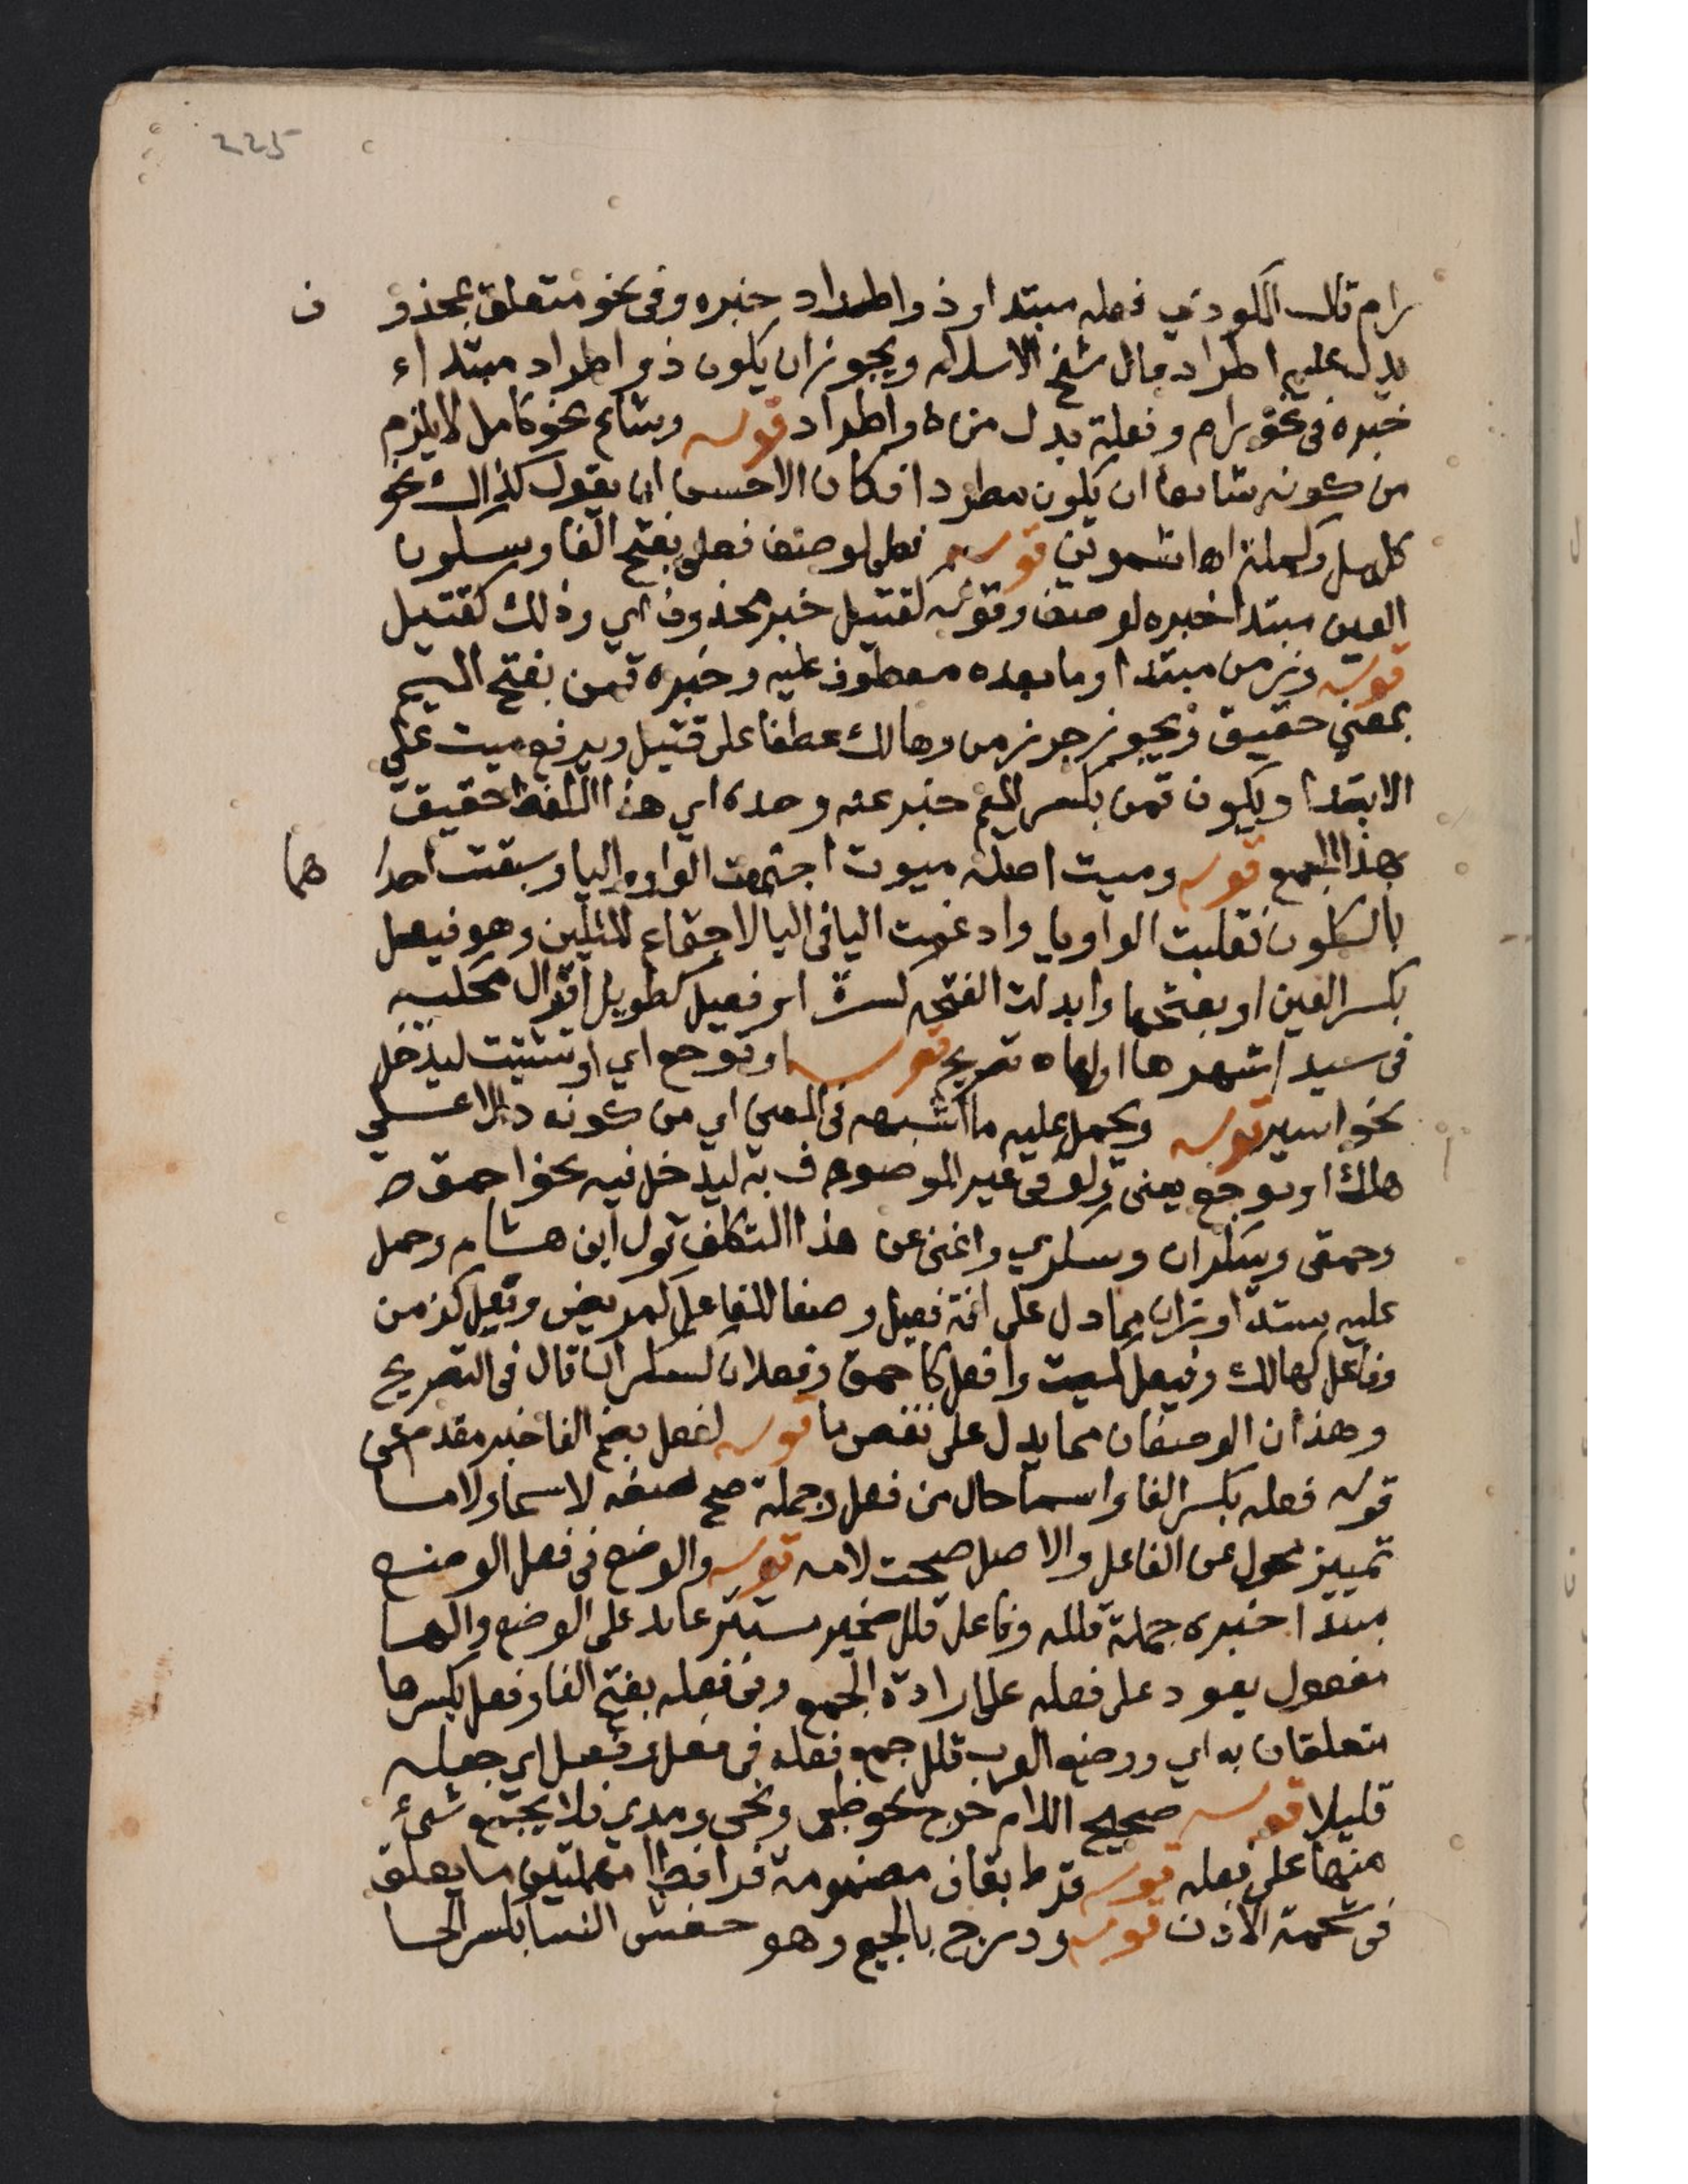 225
رام قال المكودي فعله مبتدا وذو اطراد خبره وفي نحو متعلق بمحذو ف
يدل عليه اطراد قال شيخ الاسلام ويجوز ان يكون ذو اطراد مبتداء
خبره في نحو رام وفعلة بدل من ذو اطراد قوله وشاع نحو كامل لا يلزم
من كونه شائعا ان يكون مطردا فكان الاحسن ان يقول كذاك نحو
كامل وكملة اه اشموني قوله فعلى لوصف فعلى بفتح الفا وسكون
العين مبتدا خبره لوصف وقوله كقتيل خبر محذوف اي وذلك كقتيل
قوله وزمن مبتدا وما بعده معطوف عليه وخبره قمن بفتح الميم
بمعني حقيق ويجوز جر زمن وهالك عطفا على قتيل ويرفع ميت على
الابتدا ويكون قمن بكسر الميم خبر عنه وحده اي هذا اللفظ حقيق
بهذا الجمع قوله وميت اصله ميوت اجتمعت الواو واليا وسبقت احدا هما
بالسكون فقلبت الواو يا وادغمت اليا في اليا لاجتماع المثلين وهو فيعل
بكسر العين او بفتحها وابدلت الفتحة كسرة او فعيل كطويل اقوال محكية
في سيد اشهرها اولها ه تصريح قوله او توجع اي او تشتت ليدخل
نحو اسير قوله ويحمل عليه ما اشبهه في المعني اي من كونه دالا على
هلك او توجع يعني ولو في غير الموصوف به ليدخل فيه نحو احمق
وحمقى وسكران وسكري واغنى عن هذا التكلف قول ابن هشام وحمل
عليه ستة اوزان مما دل على افة فعيل وصفا للفاعل كمريض وفعل كزمن
وفاعل كهالك وفيعل كميت وافعل كاحمق وفعلان كسكران قال في التصريح
وهذان الوصفان مما يدل على نقص ما قوله لفعل بضم الفا خبر مقدم عن
قوله فعله بكسر الفا واسما حال من فعل وجملة صح صفه لاسما ولاما
تمييز محول عن الفاعل والاصل صحت لامه قوله والوضع في فعل الوضع
مبتدا خبره جملة قلله وفاعل قلل ضمير مستتر عايد على الوضع والها
مفعول يعود على فعله على ارادة الجمع وفي فعله بفتح الفا وفعل بكسرها
متعلقان به اي ووضع العرب قلل جمع فعله في فعل وفعل اي جعله
قليلا قوله صحيح اللام خرج نحو ظبي ونحي ومدي فلا يجمع شيء
منها على فعله قوله قرط بقاف مضمومة فرا فطا مهملتين ما يعلق
في شحمة الاذن قوله ودرج بالجيم وهو حفش النسا بكسر الحا